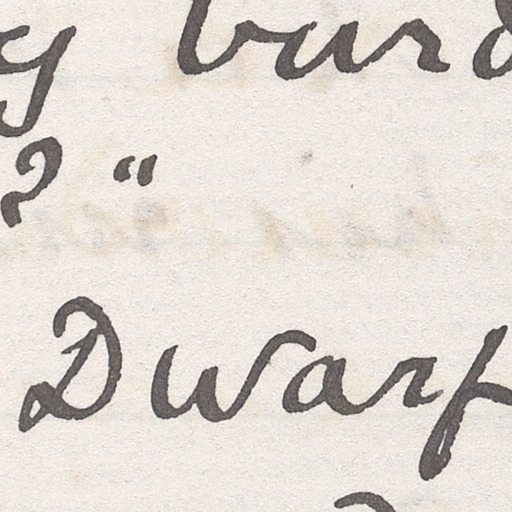 y burd
? "
Dwarf